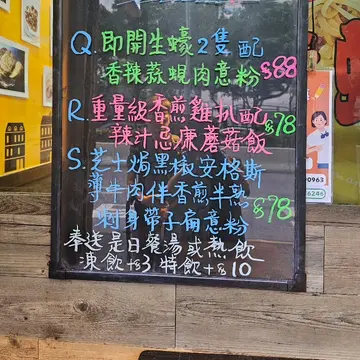 Q. 即開生蠔2隻配
香辣蒜蜆肉意粉 $88
R. 重量級香煎雞扒配
辣汁忌廉蘑菇飯 $78
S. 芝士焗黑椒安格斯
薄牛肉伴香煎半熟
刺身帶子扁意粉 $98
奉送是日餐湯或熱飲
凍飲+$3 特飲+$10
0963
6246